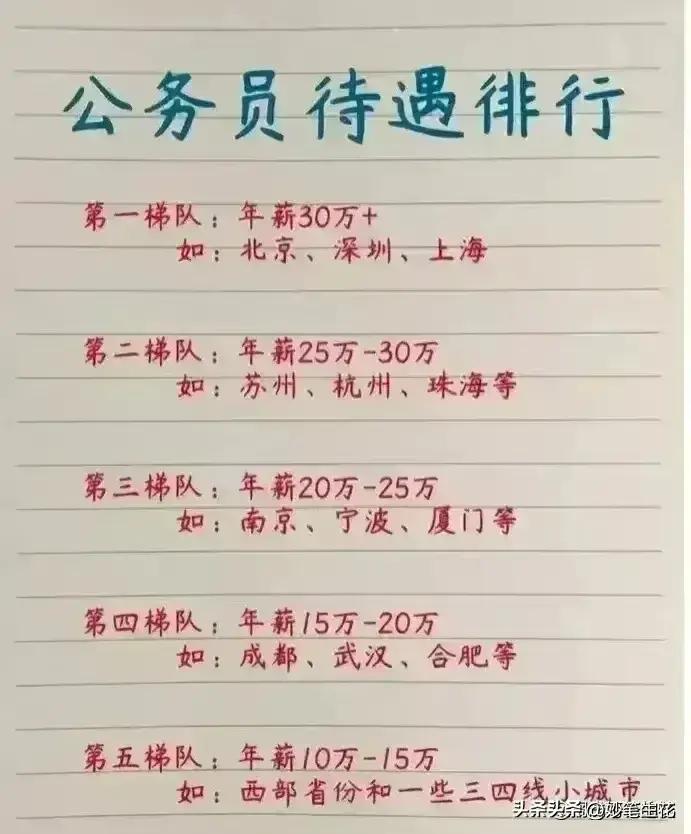 公务员待遇徘行
第一梯队：年薪30万+
如：北京、深圳、上海
第二梯队：年薪25万-30万
如：苏州、杭州、珠海等
第三梯队：年薪20万-25万
如：南京、宁波、厦门等
第四梯队：年薪15万-20万
如：成都、武汉、合肥等
第五梯队：年薪10万-15万
如：西部省份和一些三四线小城市
头条@妙笔生花